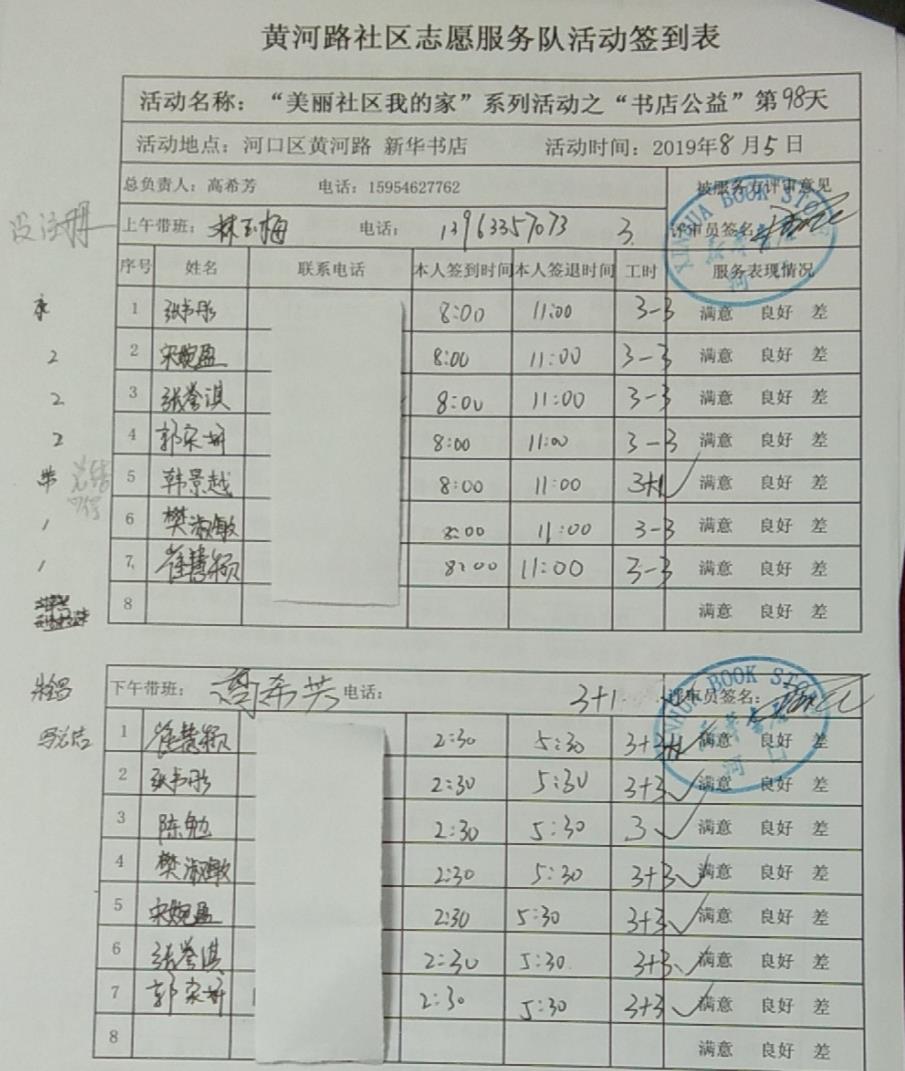 黄河路社区志愿服务队活动签到表
活动名称：“美丽社区我的家”系列活动之“书店公益”第98天
活动地点：河口区黄河路 新华书店 活动时间：2019年8月5日
总负责人：高希芳 电话：15954627762 被服务方评审意见
没注册 上午带班：林玉梅 电话：13963357073 3. 评审员签名：
XINHUA BOOK STORE
新华书店
河口
序号 姓名 联系电话 本人签到时间 本人签退时间 工时 服务表现情况
1 张韦彤 8:00 11:00 3-3 满意 良好 差
2 2 宋婉盈 8:00 11:00 3-3 满意 良好 差
2 3 张誉淇 8:00 11:00 3-3 满意 良好 差
2 4 郭家妍 8:00 11:00 3-3 满意 良好 差
5 韩景越 8:00 11:00 3+1 满意 良好 差
1 6 樊淑敏 8:00 11:00 3-3 满意 良好 差
1 7. 崔慧颖 8:00 11:00 3-3 满意 良好 差
8 满意 良好 差
下午带班：高希芳 电话： 3+1 评审员签名：
XINHUA BOOK STORE
新华书店
河口
1 崔慧颖 2:30 5:30 3+3 满意 良好 差
2 张韦彤 2:30 5:30 3+3 满意 良好 差
3 陈勉 2:30 5:30 3 满意 良好 差
4 樊淑敏 2:30 5:30 3+3 满意 良好 差
5 宋婉盈 2:30 5:30 3+3 满意 良好 差
6 张誉淇 2:30 5:30 3+3 满意 良好 差
7 郭家妍 2:30 5:30 3+3 满意 良好 差
8 满意 良好 差